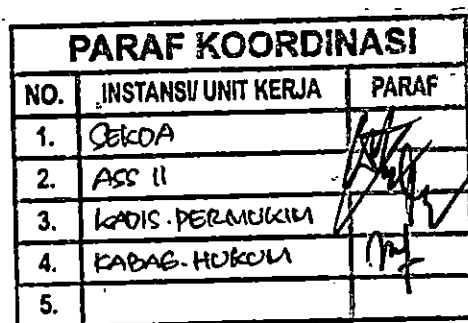 PARAF KOORDINASI
NO. INSTANSI/ UNIT KERJA PARAF
1. SEKDA
2. ASS II
3. KADIS. PERMUKIM
4. KABAG. HUKUM
5.